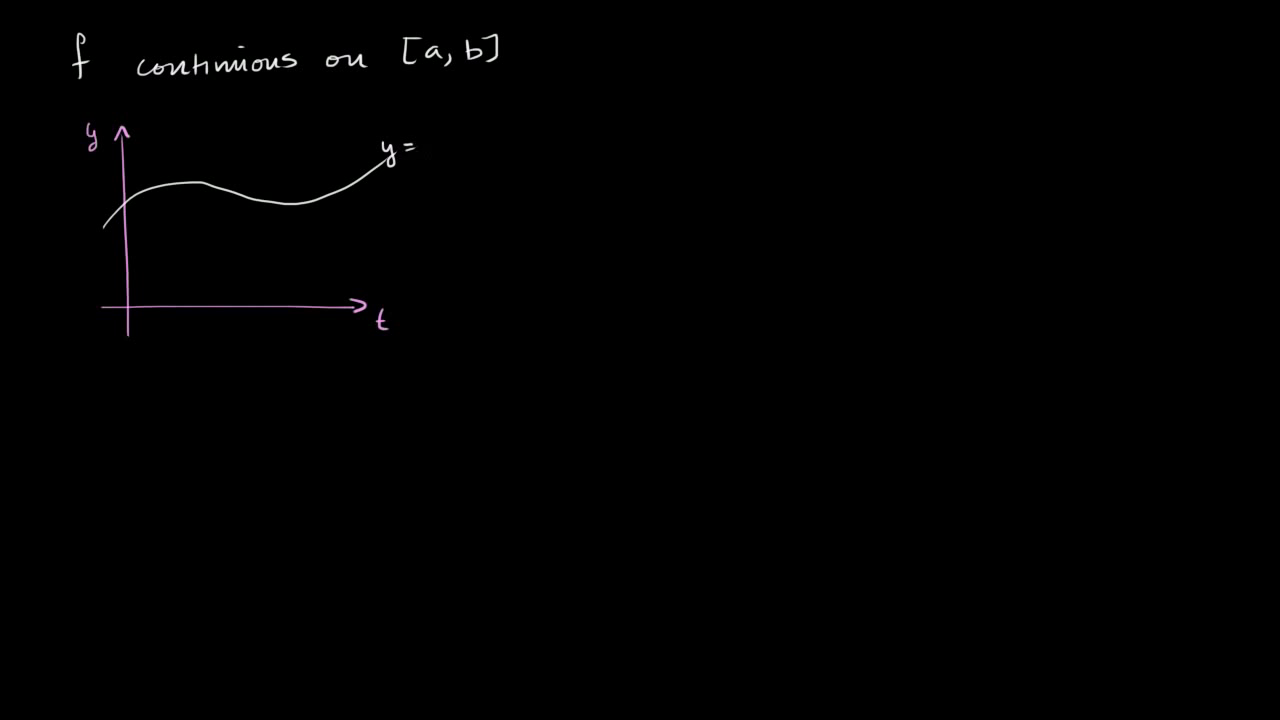 f continious on [a, b]
y
y =
t